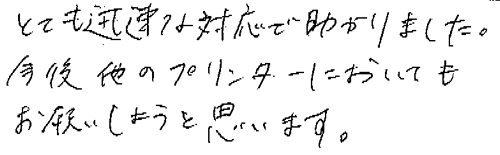 とても迅速な対応で助かりました。
今後他のプリンターにおいても
お願いしようと思います。